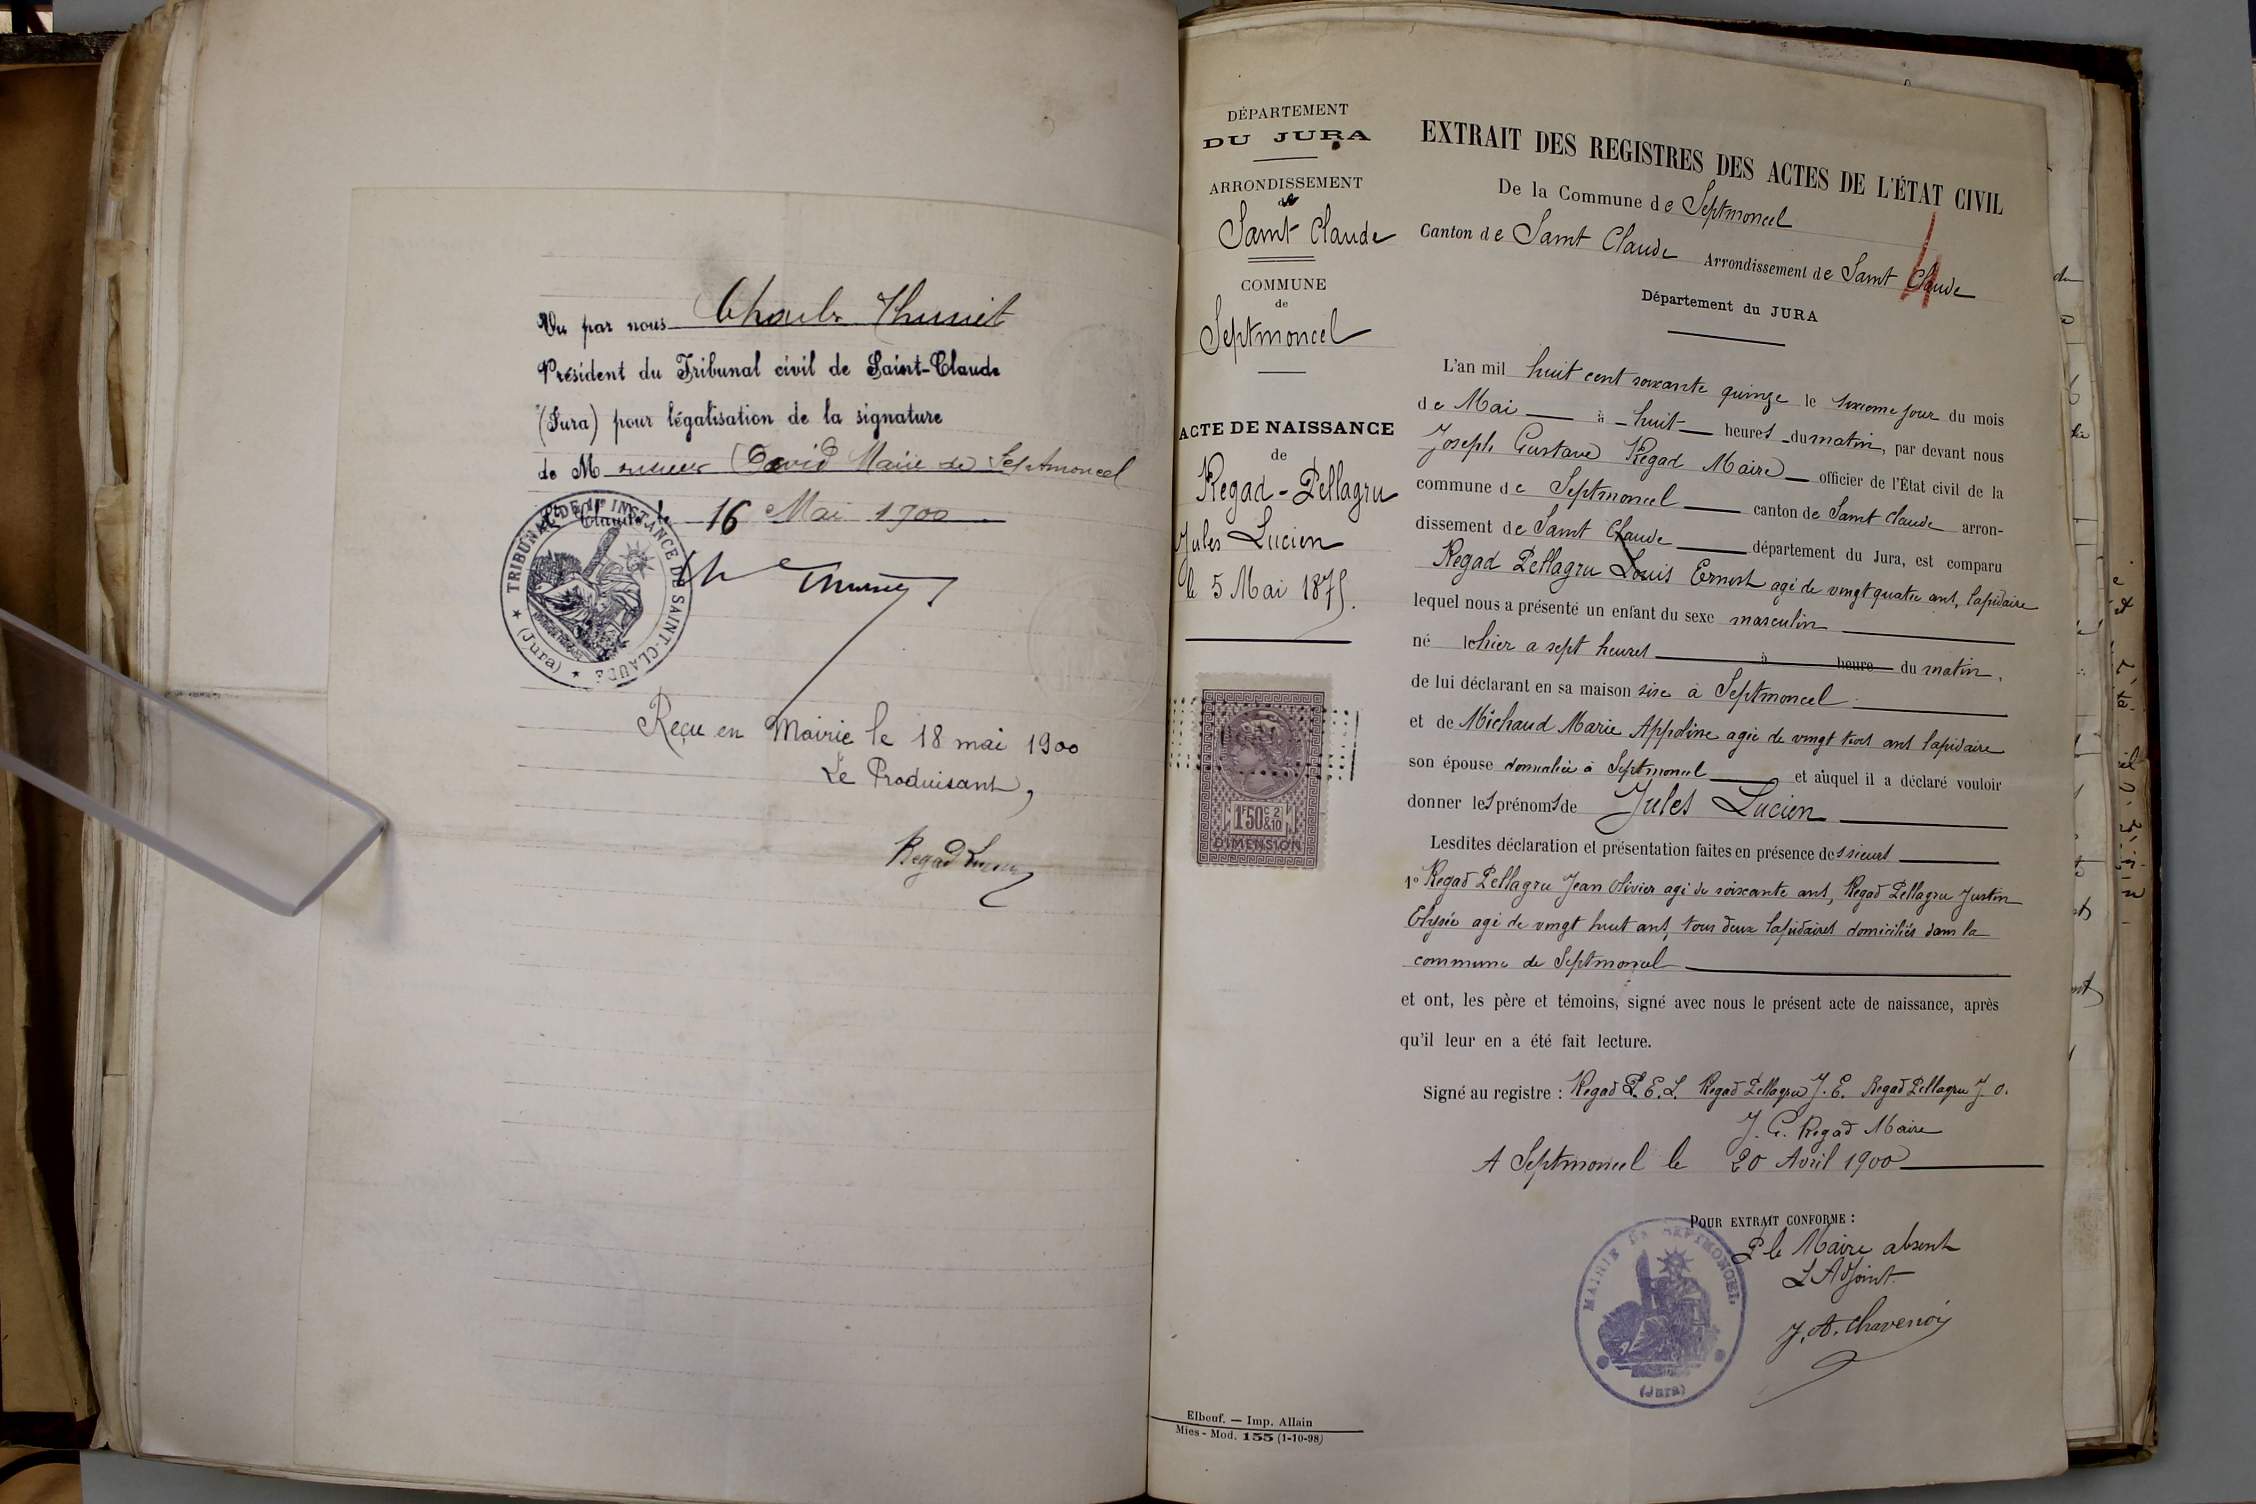 Vu par nous Charles Thuriet
Président du Tribunal civil de Saint-Claude
(Jura) pour légalisation de la signature
de Monsieur David Maire de Septmoncel
St Claude le 16 Mai 1900
TRIBUNAL DE 1RE INSTANCE DE SAINT-CLAUDE
(Jura)
Ch Thuriet
Reçu en Mairie le 18 mai 1900
Le Produisant,
Regad Lucien
DÉPARTEMENT
DU JURA
ARRONDISSEMENT
de
Saint Claude
COMMUNE
de
Septmoncel
ACTE DE NAISSANCE
de
Regad-Pellagru
Jules Lucien
le 5 Mai 1875.
1F50C 2/10
DIMENSION
EXTRAIT DES REGISTRES DES ACTES DE L'ÉTAT CIVIL
De la Commune de Septmoncel
4
Canton de Saint Claude Arrondissement de Saint Claude
Département du JURA
L'an mil huit cent soixante quinze le sixième jour du mois
de Mai à huit heures du matin, par devant nous
Joseph Gustave Regad Maire officier de l'État civil de la
commune de Septmoncel canton de Saint Claude arron-
dissement de Saint Claude département du Jura, est comparu
Regad Pellagru Louis Ernest agé de vingt quatre ans, lapidaire
lequel nous a présenté un enfant du sexe masculin
né le hier a sept heures à heure du matin,
de lui déclarant en sa maison sise à Septmoncel
et de Michaud Marie Appoline agée de vingt trois ans lapidaire
son épouse domiciliée à Septmoncel et auquel il a déclaré vouloir
donner les prénoms de Jules Lucien
Lesdites déclaration et présentation faites en présence des sieurs
1º Regad Pellagru Jean Olivier agé de soixante ans, Regad Pellagru Justin
Elysée agé de vingt huit ans, tous deux lapidaires domiciliés dans la
commune de Septmoncel
et ont, les père et témoins, signé avec nous le présent acte de naissance, après
qu'il leur en a été fait lecture.
Signé au registre : Regad P. E. L. Regad Pellagru J. E. Regad Pellagru J. O.
J. G. Regad Maire
A Septmoncel le 20 Avril 1900
POUR EXTRAIT CONFORME :
P le Maire absent
L'Adjoint
J. A. Chavenoij
MAIRIE DE SEPTMONCEL
(Jura)
Elbeuf. — Imp. Allain
Mies - Mod. 155 (1-10-98)